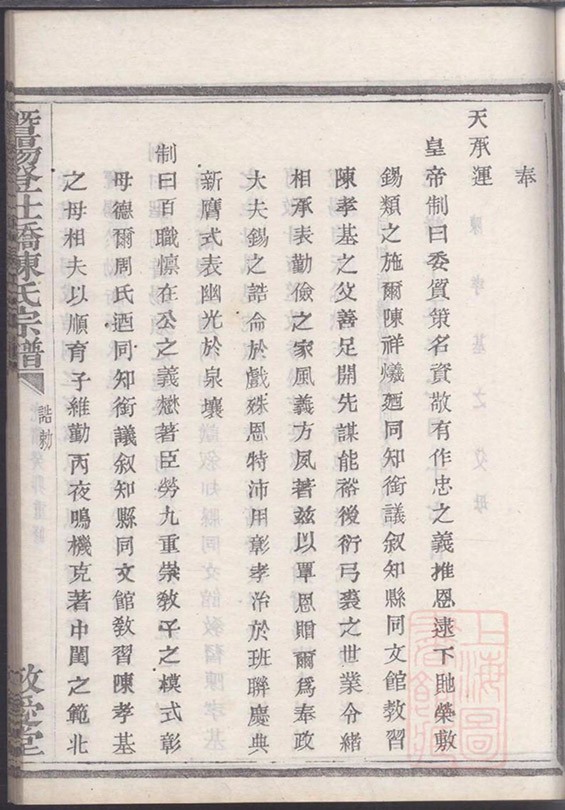 奉
天承運
皇帝制曰委質策名資敬有作忠之義推恩逮下貤榮敷
錫類之施爾陳祥爔廼同知銜議叙知縣同文館教習
陳孝基之父善足開先謀能裕後衍弓裘之世業令緒
相承表勤儉之家風義方夙著兹以覃恩贈爾爲奉政
大夫錫之誥命於戲殊恩特沛用彰孝治於班聯慶典
新膺式表幽光於泉壤
制曰百職懍在公之義懋著臣勞九重崇教子之模式彰
母德爾周氏廼同知銜議叙知縣同文館教習陳孝基
之母相夫以順育子維勤丙夜鳴機克著中閨之範北
暨陽登仕橋陳氏宗譜
誥勅
敦堂
上海圖